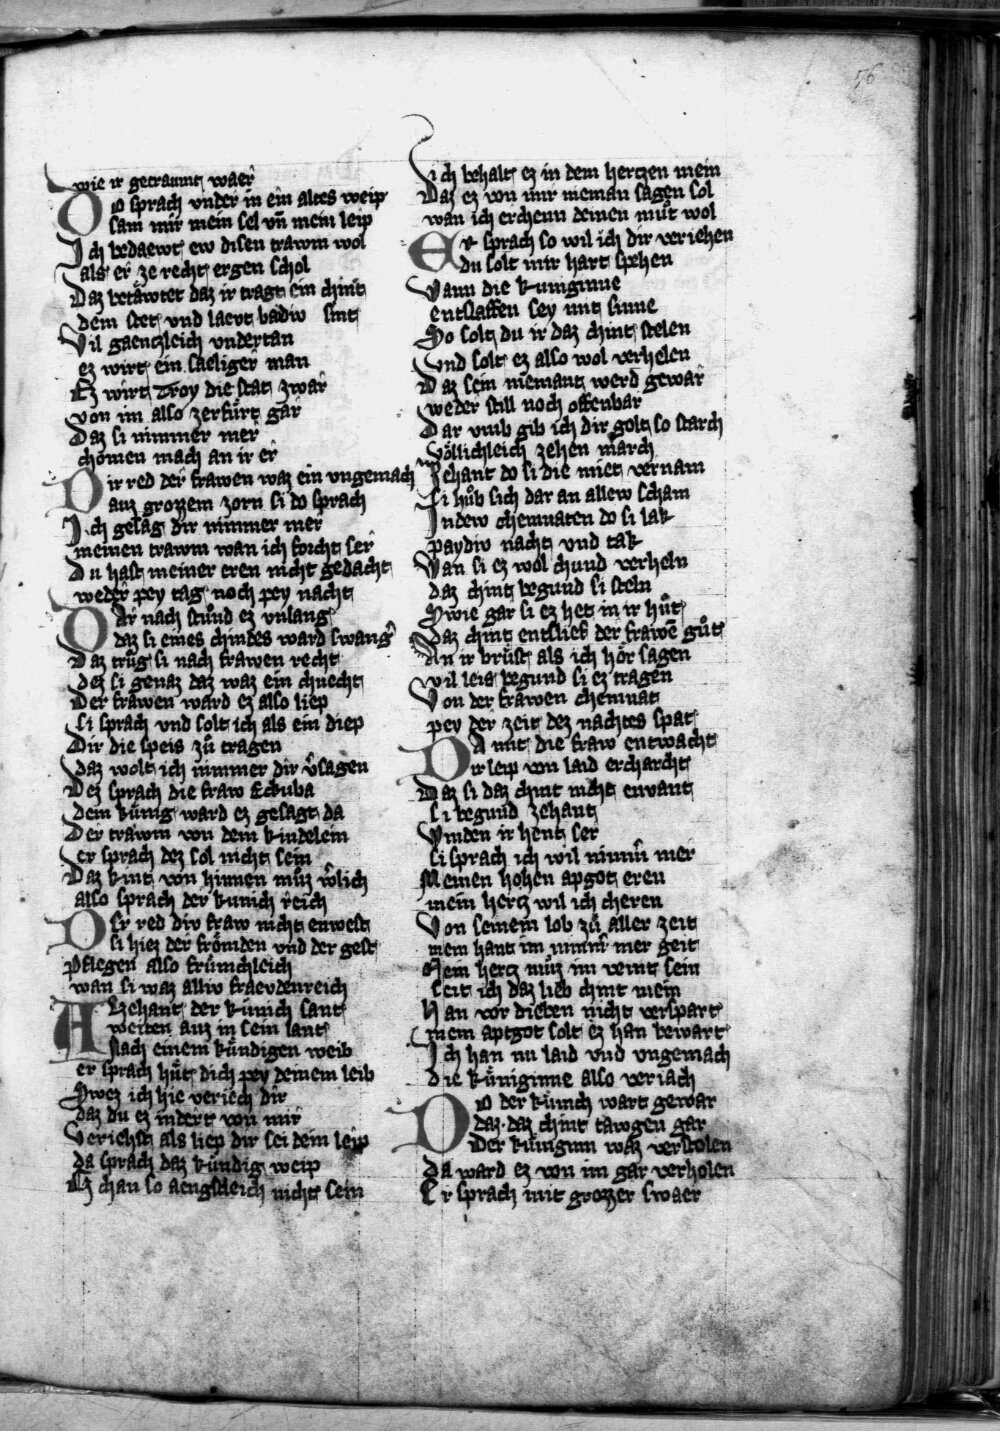 76
wie ir getraumt waer
Do sprach vnder in ein altes weip
sam mir mein sel vñ mein leip
Ich bedaewt ew disen trawm wol
als er ze recht ergen schol
Daz betäwtet daz ir tragt ein chint
dem stet vnd laevt baidiw sint
Vil gaenczleich vndertan
ez wirt ein saeliger man
Ez wirt Troy die stat zwar
von im also zerfürt gar
Daz si nimmer mer
chomen mach an ir er
Dir red der frawen waz ein vngemach
auz grozzem zorn si do sprach
Ich gesag dir nimmer mer
meinen trawm wan ich forcht ser
Du hast meiner eren nicht gedacht
weder pey tag noch pey nacht
Dar nach stuͦnd ez vnlang
daz si eines chindes ward swang
Daz truͦg si nach frawen recht
dez si genaz daz waz ein chnecht
Der frawen ward ez also liep
si sprach vnd solt ich als ein diep
Dir die speis zuͦ tragen
daz wolt ich nimmer dir vsagen
Dez sprach die fraw Eckuba
dem künig ward ez gesagt da
Der trawm von dem kindelein
er sprach dez sol nicht sein
Daz kint von hinnen müz
also sprach der kunich reich
Der red div fraw nicht enwest
si hiez der frömden vnd der gest
Pflegen also frümchleich
wan si waz alliv fraevdenreich
Alzehant der künich sant
weiten auz in sein lant
Nach einem kündigen weib
er sprach hüt dich pey deinem leib
Swez ich hie veriech dir
daz du ez indert von mir
Verichst als liep dir sei dein leip
da sprach daz kündig weip
Ez chan so aengsleich nicht sein
ich behalt ez in dem hertzen mein
Daz ez von mir nieman sagen sol
wan ich erchenn deinen muͦt wol
Er sprach so wil ich dir veriehen
du solt mir hart spehen
Wann die kuniginne
entslaffen sey mit sinne
So solt du ir daz chint stelen
vnd solt ez also wol verhelen
Daz sein niemant werd gewar
weder still noch offenbar
Dar vmb gib ich dir golt so starch
völlichleich zehen march
Zehant do si die miet vernam
si huͦb sich dar an allew scham
In dew chemnaten do si lak
paydiv nacht vnd tak
Wan si ez wol chund verheln
daz chint begund si steln
Swie gar si ez het in ir huͦt
Daz chint entslief der frawē guͦt
An ir brüst als ich hör sagen
vil leis begund si ez tragen
Von der frawen chemnat
pey der zeit dez nachtes spat
Da mit die fraw entwacht
ir leip von laid ercharcht
Daz si daz chint nicht envant
si begund zehant
Winden ir hent ser
si sprach ich wil nimm mer
Meinen hohen apgot eren
mein hertz wil ich cheren
Von seinem lob zuͦ aller zeit
mein hant im nimm mer geit
Mein hertz müz im veint sein
seit ich daz lieb chint mein
Han vor dieben nicht verspart
mein aptgot solt ez han bewart
Ich han nu laid vnd vngemach
die küniginne also veriach
Do der künich wart gewar
daz daz chint tawgen gar
Der künginn waz verstolen
da ward ez von im gar verholen
Er sprach mit grozzer swaer